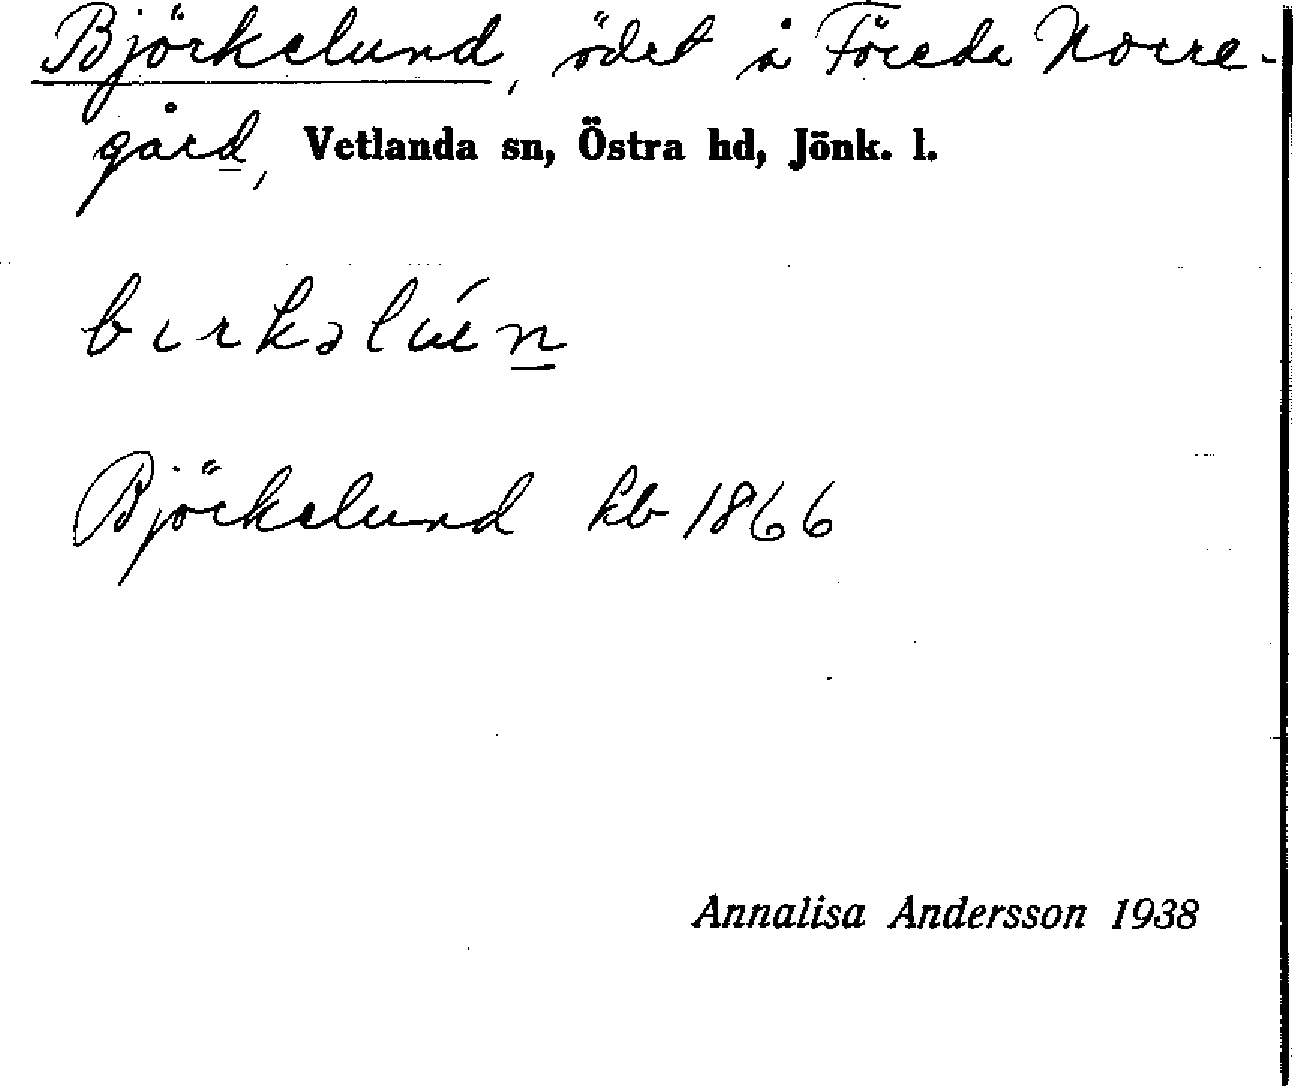 Björkelund, ödet å Föreda Norre-
gård, Vetlanda sn, Östra hd, Jönk. l.
Björkelund hb 1866
Annalisa Andersson 1938